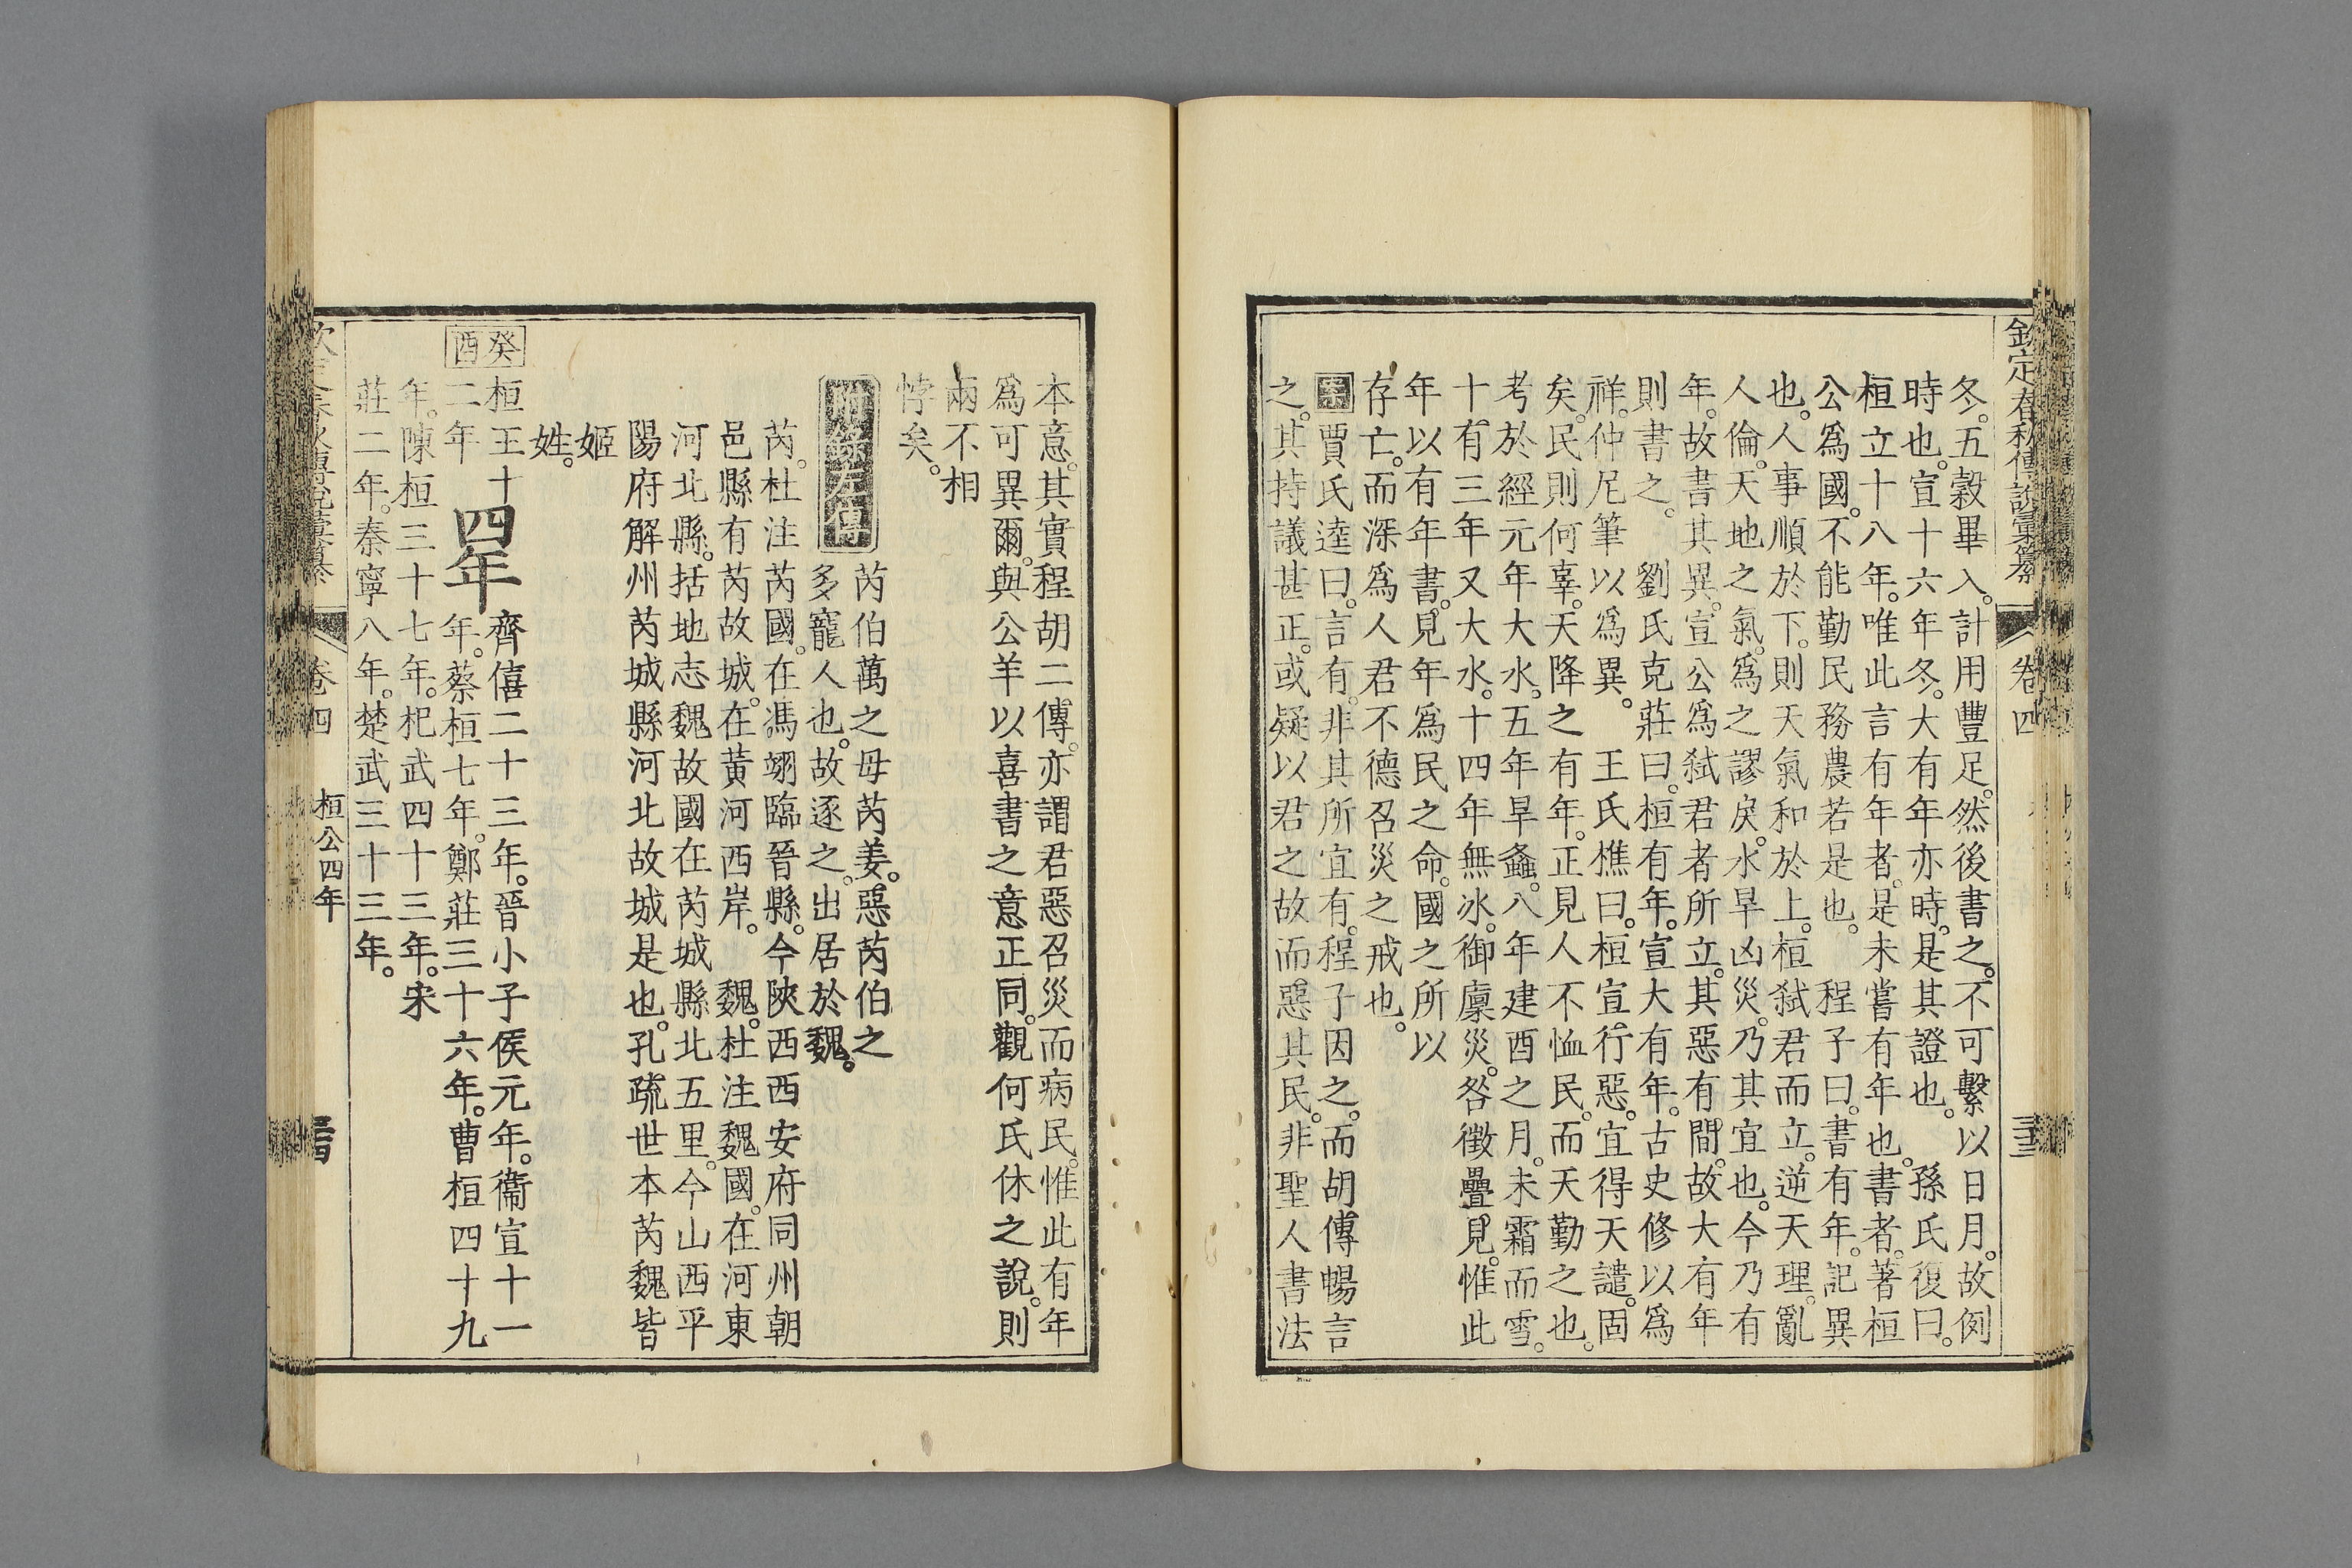 欽定春秋傳說彙纂 卷四
冬。五穀畢入。計用豐足。然後書之。不可繫以日月。故例
時也。宣十六年冬。大有年亦時。是其證也。 孫氏復曰。
桓立十八年。唯此言有年者。是未嘗有年也。書者。著桓
公為國。不能勤民務農若是也。 程子曰。書有年。記異
也。人事順於下。則天氣和於上。桓弒君而立。逆天理。亂
人倫。天地之氣。為之謬戾。水旱凶災。乃其宜也。今乃有
年。故書其異。宣公為弒君者所立。其惡有間。故大有年
則書之。 劉氏克莊曰。桓有年。宣大有年。古史修以為
祥。仲尼筆以為異。 王氏樵曰。桓宣行惡。宜得天譴。固
矣。民則何辜。天降之有年。正見人不恤民。而天勤之也。
考於經元年大水。五年旱螽。八年建酉之月。未霜而雪。
十有三年又大水。十四年無冰。御廩災。咎徵疊見。惟此
年以有年書。見年為民之命。國之所以
存亡。而深為人君不德召災之戒也。
案賈氏逵曰。言有。非其所宜有。程子因之。而胡傳暢言
之。其持議甚正。或疑以君之故而惡其民。非聖人書法
本意。其實程胡二傳。亦謂君惡召災而病民。惟此有年
為可異爾。與公羊以喜書之意正同。觀何氏休之說。則
兩不相
悖矣。
附錄左傳 芮伯萬之母芮姜。惡芮伯之
多寵人也。故逐之。出居於魏。
芮。杜注芮國。在馮翊臨晉縣。今陝西西安府同州朝
邑縣有芮故城。在黃河西岸。 魏。杜注魏國。在河東
河北縣。括地志魏故國在芮城縣北五里。今山西平
陽府解州芮城縣河北故城是也。孔疏世本芮魏皆
姬
姓。
癸酉
桓王十二年
四年
齊僖二十三年。晉小子侯元年。衞宣十一
年。蔡桓七年。鄭莊三十六年。曹桓四十九
年。陳桓三十七年。杞武四十三年。宋
莊二年。秦寧八年。楚武三十三年。
卷四 桓公四年